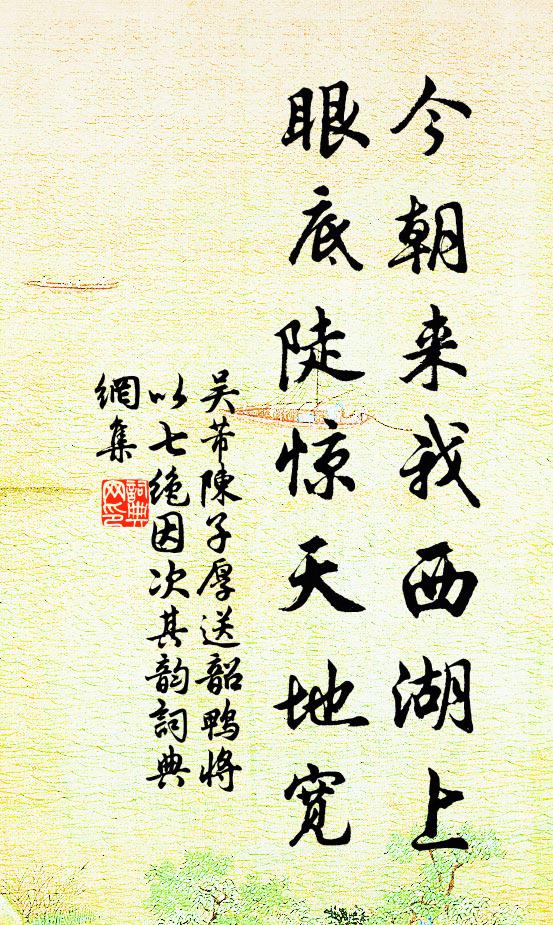 今朝来我西湖上
眼底陡惊天地宽
吴芾陳子厚送韶鴨将
以七絶因次其韵詞典
網集
詞典
网印